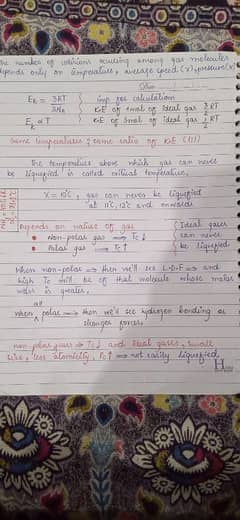 The number of collisions occuring among gas molecules
depends only on temperature, average speed (✓), pressure(✗)
EK = 3RT / 2NA } imp for calculation
K.E of 1mol of Ideal gas 3/2 RT
EK ∝ T } K.E of 5mol of Ideal gas RT
Same temperature; same ratio of K.E (1:1)
The temperature above which gas can never
be liquefied is called critical temperature,
X = 10°C, gas can never be liquefied
at 11°C, 12°C and onwards
Depends on nature of gas { Ideal gases
• Non-polar gas ⟹ Tc↓ can never
• Polar gas ⟹ Tc↑ be liquefied
When non-polar ⟹ then we'll see L.D.F ⟹ and
high Tc will be of that molecule whose molar
mass is greater,
When all polar ⟹ then we'll see hydrogen bonding or
stronger forces,
non polar gases ⟹ Tc↓ and Ideal gases, small
size, less atomicity, ⟹ not easily liquefied